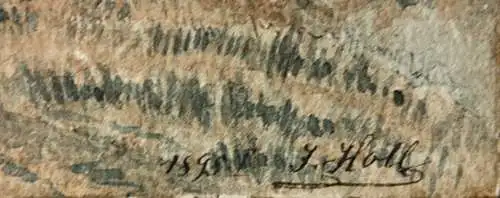 1895 J. Holl